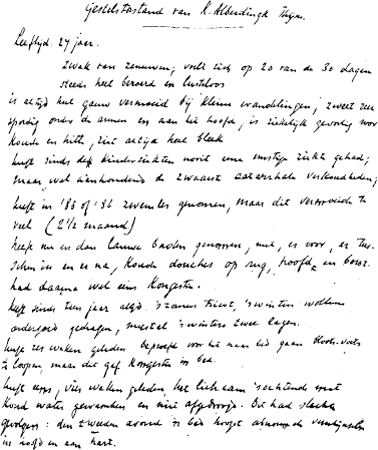 Gestelstoestand van K. Alberdingk Thijm.
Leeftijd 27 jaar.
Zwak van zenuwen; voelt zich op 20 van de 30 dagen
steeds heel beroerd en lusteloos
is altijd heel gauw vermoeid bij kleine wandelingen; zweet zeer
spoedig onder de armen en aan het hoofd, is ziekelijk gevoelig voor
koude en hitte, ziet altijd heel bleek
heeft sinds de kinderziekten nooit eene ernstige ziekte gehad;
maar wel aanhoudend de zwaarst catarrhale verkoudheden;
heeft in '85 of '86 zeebaden genomen, maar dit vermoeide te
veel (2½ maand)
heeft nu en dan lauwe baden genomen, met, er voor, er tus-
schen in en er na, koude douches op rug, hoofd, en borst.
had daarna wel eens kongestie.
heeft sinds tien jaar altijd 's zomers tricot, 's winters wollen
ondergoed gedragen, meestal 's winters twee lagen.
heeft zes weken geleden beproefd voor het naar bed gaan bloots-voets
te loopen, maar dit gaf kongestie in bed.
heeft eens, vier weken geleden, het lichaam 's ochtends met
koud water gewasschen en niet afgedroogd. Dit had slechte
gevolgen: den tweeden avond in bed hoogst abnormale verschijnselen
in hoofd en aan hart.